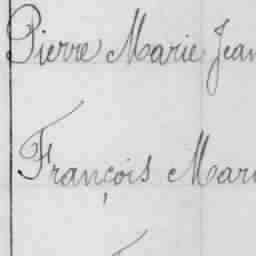 Pierre Marie Jean
François Mari